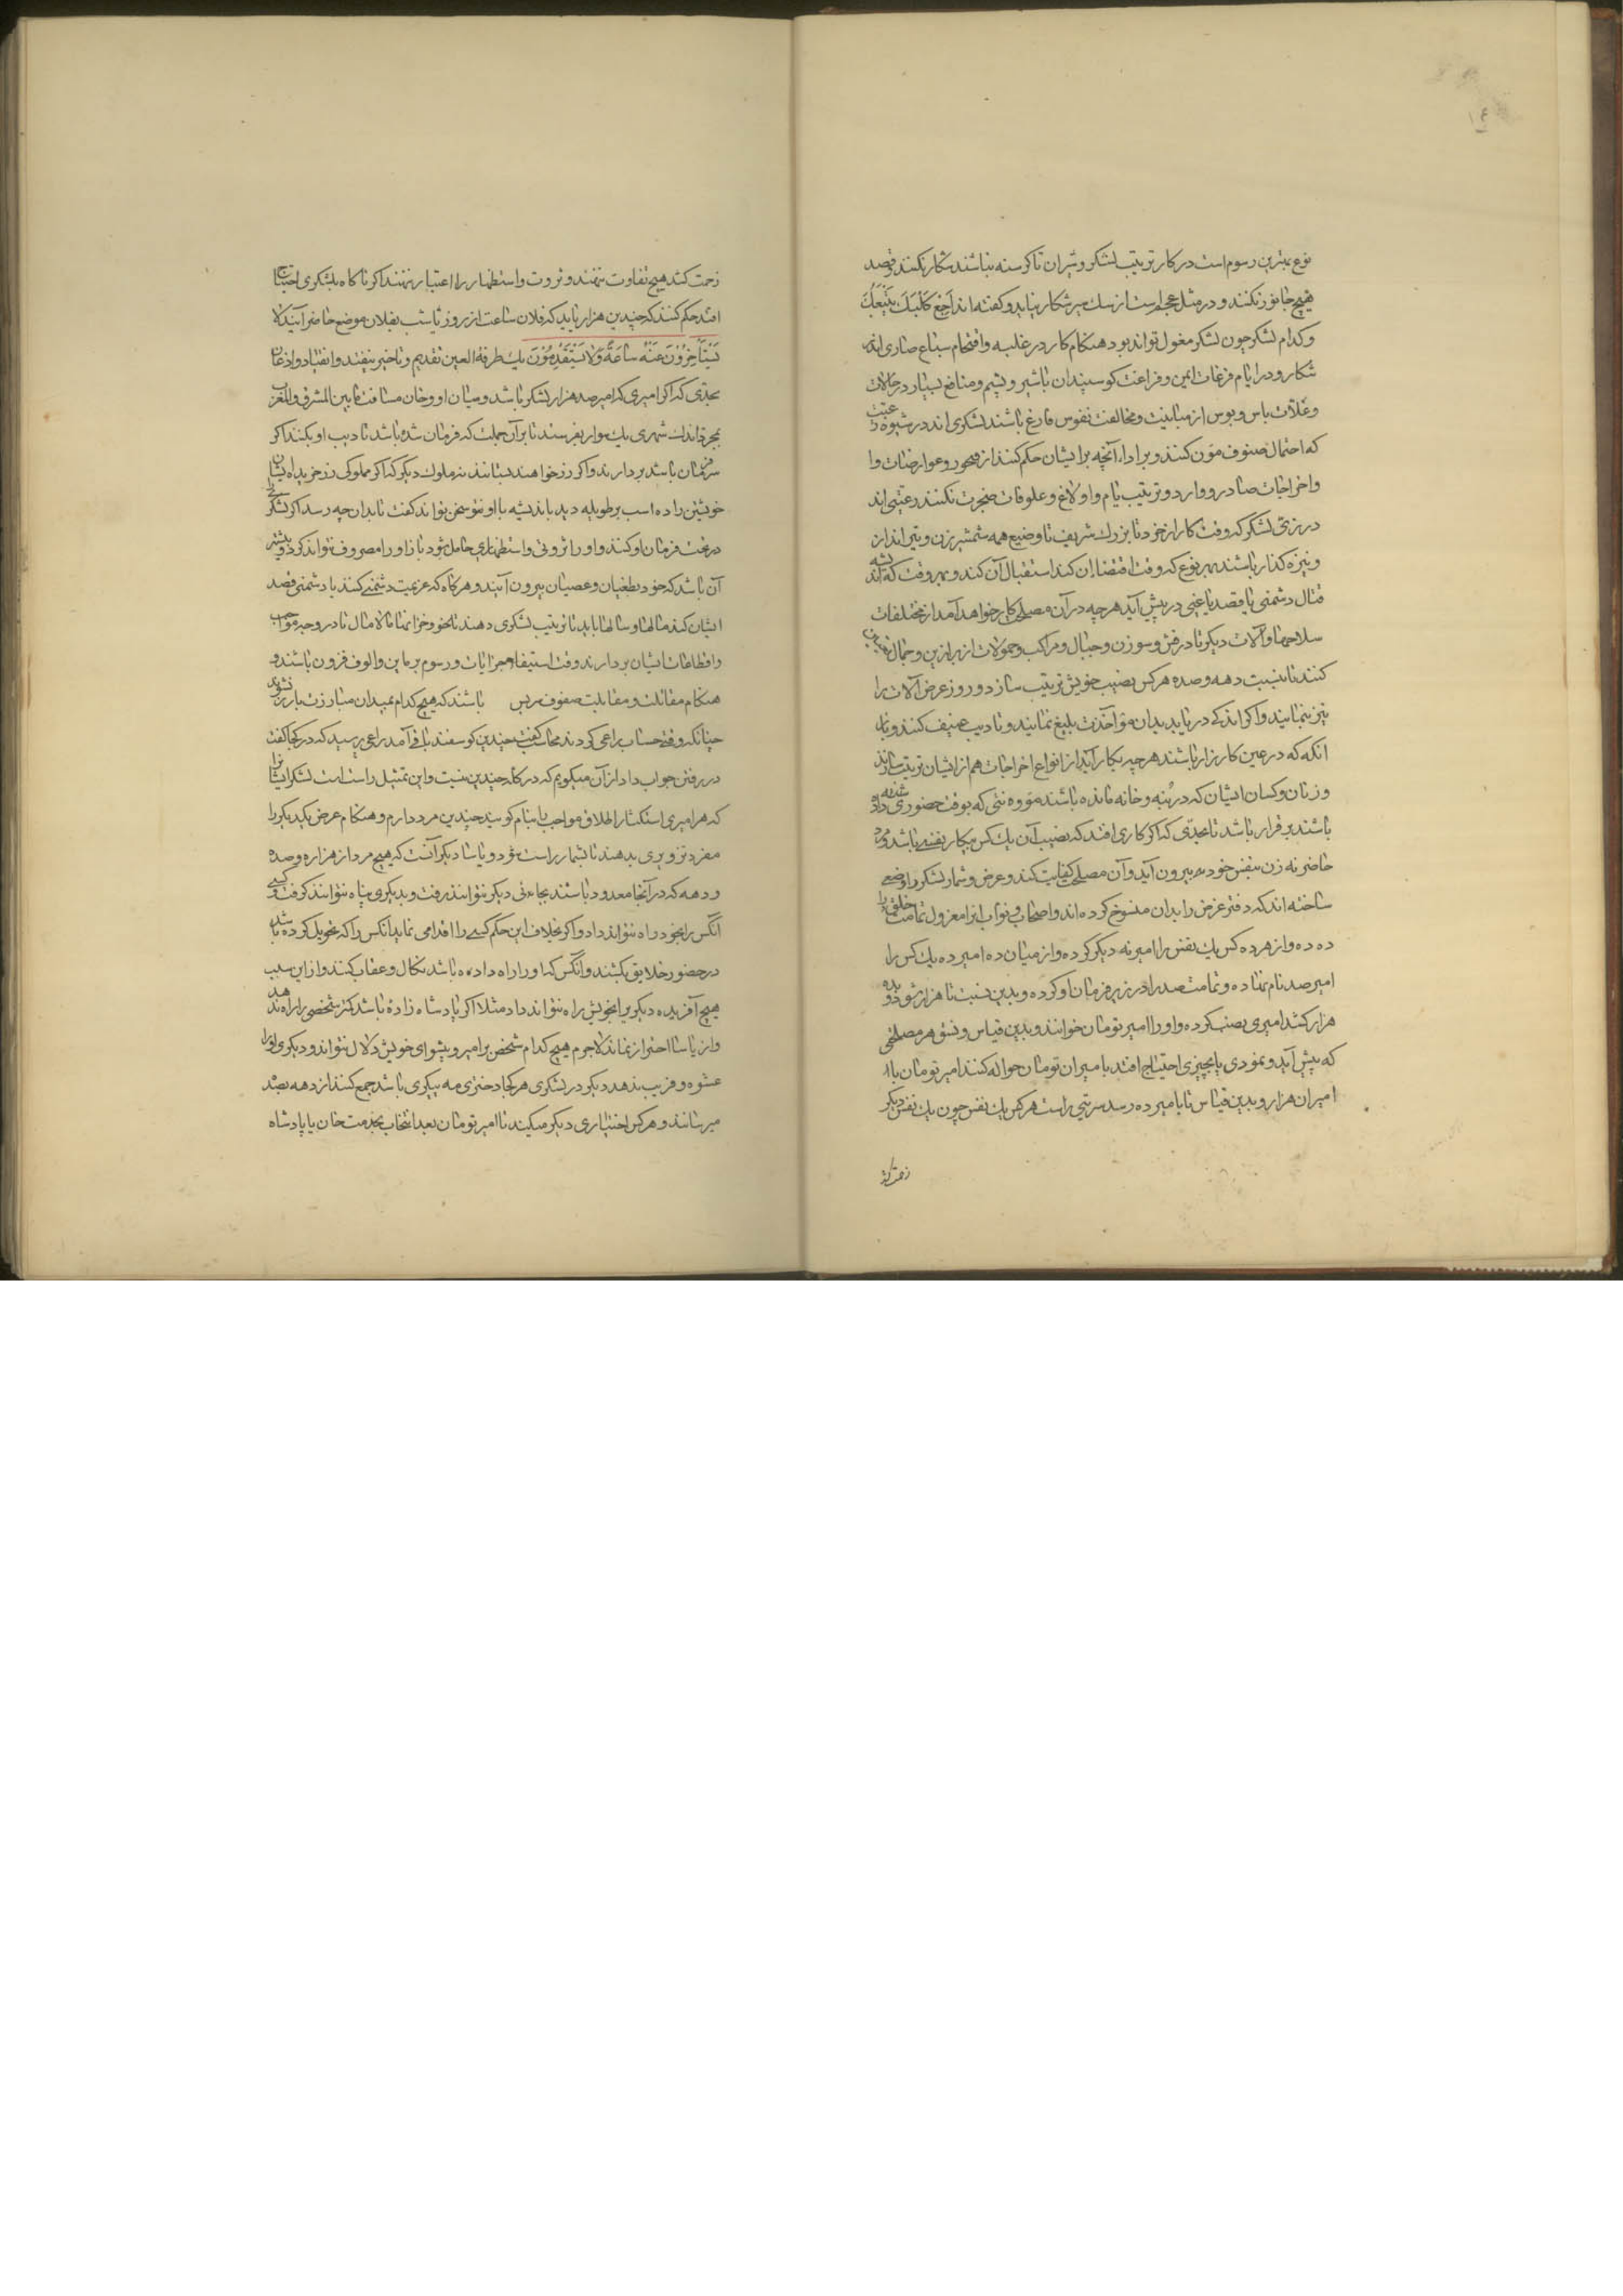 ۱۴
نوع بهترین رسوم است در کار ترتیب لشکر و شیران تا گرسنه نباشند شکار نکنند و قصد
هیچ جانور نکنند و در مثل عجم است از سک سیر شکار نیاید و کفته اند اَجِعْ کَلْبَكَ یَتْبَعْكَ
و کدام لشکر چون لشکر مغول تواند بود هنکام کار در غلبه و اقتحام سباع ضاری اند
شکار و در ایام فرغات امن و فراغت کوسپندان با شیر و پشم و منافع بسیار در حالات
و علات باس و بوس از مباینت و مخالفت نفوس فارغ باشند لشکری اند در شیوه رعیت
که احتمال صنوف مؤن کنند و بر اداء آنچه بر ایشان حکم کنند از قبجور و عوارضات و ا
و اخراجات صادر و وارد و ترتیب یام و اولاغ و علوفات ضجرت نکنند رعیتی اند
در زی لشکر که وقت کارزار خرد تا بزرك شریف تا وضیع همه شمشیر زن و تیر انداز
و نیزه کذار باشند بهر نوع که وقت اقتضاء آن کند استقبال آن کنند و بهر وقت که اندیشه
قتال دشمنی یا قصد یاغیی در پیش آید هرچه در آن مصلحت بکار خواهد آمد از مختلفات
سلاحها و آلات دیکر تا درفش و سوزن و حبال و مراکب و حمولات از براذین و جمال تعیین
کنند تا بنسبت دهه و صده هر کس نصیب خویش ترتیب سازد و روز عرض آلات را
نیز بنمایند و اکر اندکی در باید بدان مؤاخذت بلیغ نمایند و تادیب عنیف کنند و با
انکه که در عین کارزار باشند هرچه بکار آید از انواع اخراجات هم از ایشان ترتیب سازند
و زنان و کسان ایشان که در بنه و خانه مانده باشند مؤونتی که بوقت حضور می داده
باشند بر قرار باشد تا بحدی که اکر کاری افتد که نصیب آن یك کس بیکار نفسی باشد و مرد
حاضر نه زن بنفس خود بیرون آید و آن مصلحت کفایت کند و عرض و شمار لشکر را وضعی
ساخته اند که دفتر عرض را بدان منسوخ کرده اند و اصحاب و نواب انرا معزول تمامت خلق را
ده ده و از هر ده کس یك نفس را امیر نه دیکر کرده و از میان ده امیر ده یك کس را
امیر صد نام نهاده و تمامت صد را در زیر فرمان او کرده و بدین نسبت تا هزار شود و بده
هزار کشد امیری نصب کرده و او را امیر تومان خوانند و بدین قیاس و نسق هر مصلحتی
که پیش آید و بمردی یا بچیزی احتیاج افتد با امیران تومان حواله کنند امیر تومان با
امیران هزار و بدین قیاس تا با امیر ده رسد سویتی راست هر کس یك نفس چون یك نفس دیکر
زحمت کشد
زحمت کشد هیچ تفاوت ننهند و ثروت و استظهار را اعتبار ننهند اکر ناکاه بلشکری احتیاج
افتد حکم کنند که چندین هزار باید که فلان ساعت از روز یا شب بفلان موضع حاضر آیند لا
یَسْتَأْخِرُونَ عَنْهُ سَاعَةً وَلَا یَسْتَقْدِمُونَ یك طرفة العین تقدیم و تاخیر نیفتد و انقیاد و اذعان
بحدی که اکر امیری که امیر صد هزار لشکر باشد و میان او و خان مسافت مابین المشرق و المغرب
بمجرد اندك سهوی یك سوار بفرستد تا بر آن جملت که فرمان شده باشد تادیب او بکند اکر
سر فرمان باشد بردارند و اکر زر خواهند بستانند نه ملوك دیکر که اکر مملوکی زر خریده ایشان
خویشتن را ده اسب بر طویله دید باندیشه با او سخن تواند کفت تا بدان چه رسد اکر لشکری
در تحت فرمان او کنند و او را ثروتی و استظهاری حاصل شود باز او را مصروف نتواند کرد و بیشتر
آن باشد که خود بطغیان و عصیان بیرون آیند و هر کاه که عزیمت دشمنی کنند یا دشمنی قصد
ایشان کند ماهها و سالها باید تا ترتیب لشکری دهند تا بخود و خزانها مالامال تا در وجه مواجب
و اقطاعات ایشان بردارند وقت استیفاء جرایات و رسوم بر ماین و الوف فزون باشند و
هنکام مقاتلت و مقابلت صفوف مریس باشند که هیچ کدام بمیدان مبارزت بارز نشوند
چنانکه وقتی حساب راعی کردند محاسب کفت چندین کوسفند باقی آمد راعی پرسید که در کجا کفت
در دفتر جواب داد از آن میکویم که در کله چندین نیست و این تمثیل راست است لشکر ایشانرا
که هر امیری استکثار اطلاق مواجب را بنام کوید چندین مرد دارم و هنکام عرض یکدیکر را
مغرد تزویری بدهند تا بشمار راست شود و یاسا دیکر آنست که هیچ مرد از هزاره و صده
و دهه که در آنجا معدود باشند بجاء ئی دیکر نتوانند رفت و بدیکری پناه نتوانند کرفت و کسی
آنکس را بخود راه نتواند داد و اکر بخلاف این حکم کسی را اقدامی نماید آنکس را که تحویل کرده باشد
در حضور خلایق بکشند و آنکس که او را راه داده باشد نکال و عقاب کنند و از این سبب
هیچ آفریده دیکریرا بخویش راه نتواند داد مثلا اکر پادشاه زاده باشد کمتر شخصی را راه ندهد
و از یاسا احتراز نماید لاجرم هیچ کدام شخص بر امیر و پیشوای خویش دلال نتواند و دیکری او را
عشوه و فریب ندهد دیکر در لشکری هر کجا دختری مه پیکری باشد جمع کنند از دهه بصد
میرسانند و هر کس اختیاری دیکر میکند تا امیر تومان بعد انتخاب بخدمت خان یا پادشاه